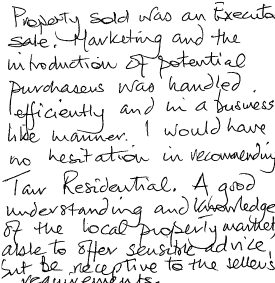 Property sold was an Executor
sale. Marketing and the
introduction of potential
purchasers was handled
efficiently and in a business
like manner. I would have
no hesitation in recommending
Taw Residential. A good
understanding and knowledge
of the local property market
able to offer sensible advice,
but be receptive to the seller's
requirements.